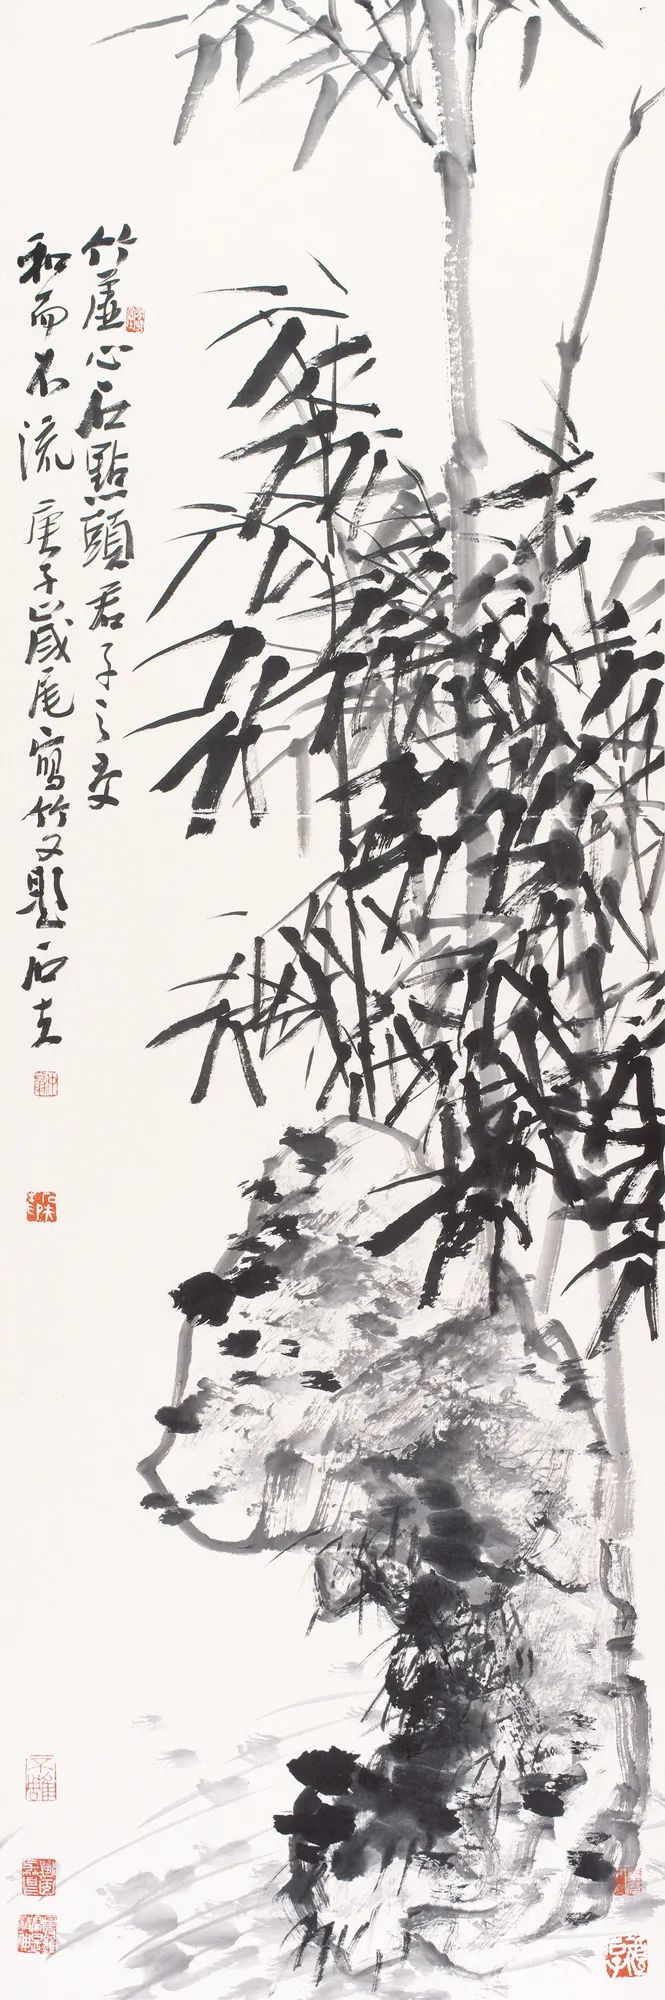 竹虛心石點頭君子之交
和而不流庚子歲尾寫竹又題石夫